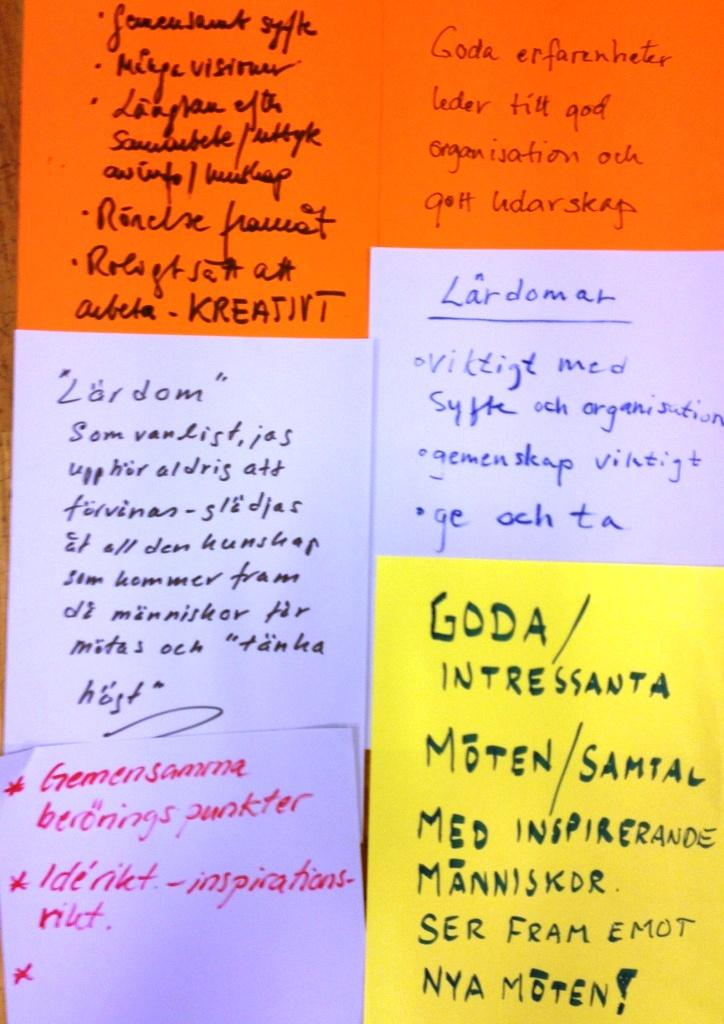 • Gemensamt syfte
• Många visioner
• Längtan efter
samarbete/utbyte
av info/kunskap
• Rörelse framåt
• Roligt sätt att
arbeta - KREATIVT
Goda erfarenheter
leder till god
organisation och
gott ledarskap
Lärdomar
• viktigt med
syfte och organisation
• gemenskap viktigt
• ge och ta
"Lärdom"
Som vanligt, jag
upphör aldrig att
förvånas - glädjas
åt all den kunskap
som kommer fram
då människor får
mötas och "tänka
högt"
GODA/
INTRESSANTA
MÖTEN/SAMTAL
MED INSPIRERANDE
MÄNNISKOR.
SER FRAM EMOT
NYA MÖTEN!
* Gemensamma
berörings punkter
* Idérikt. - inspirations-
rikt.
*